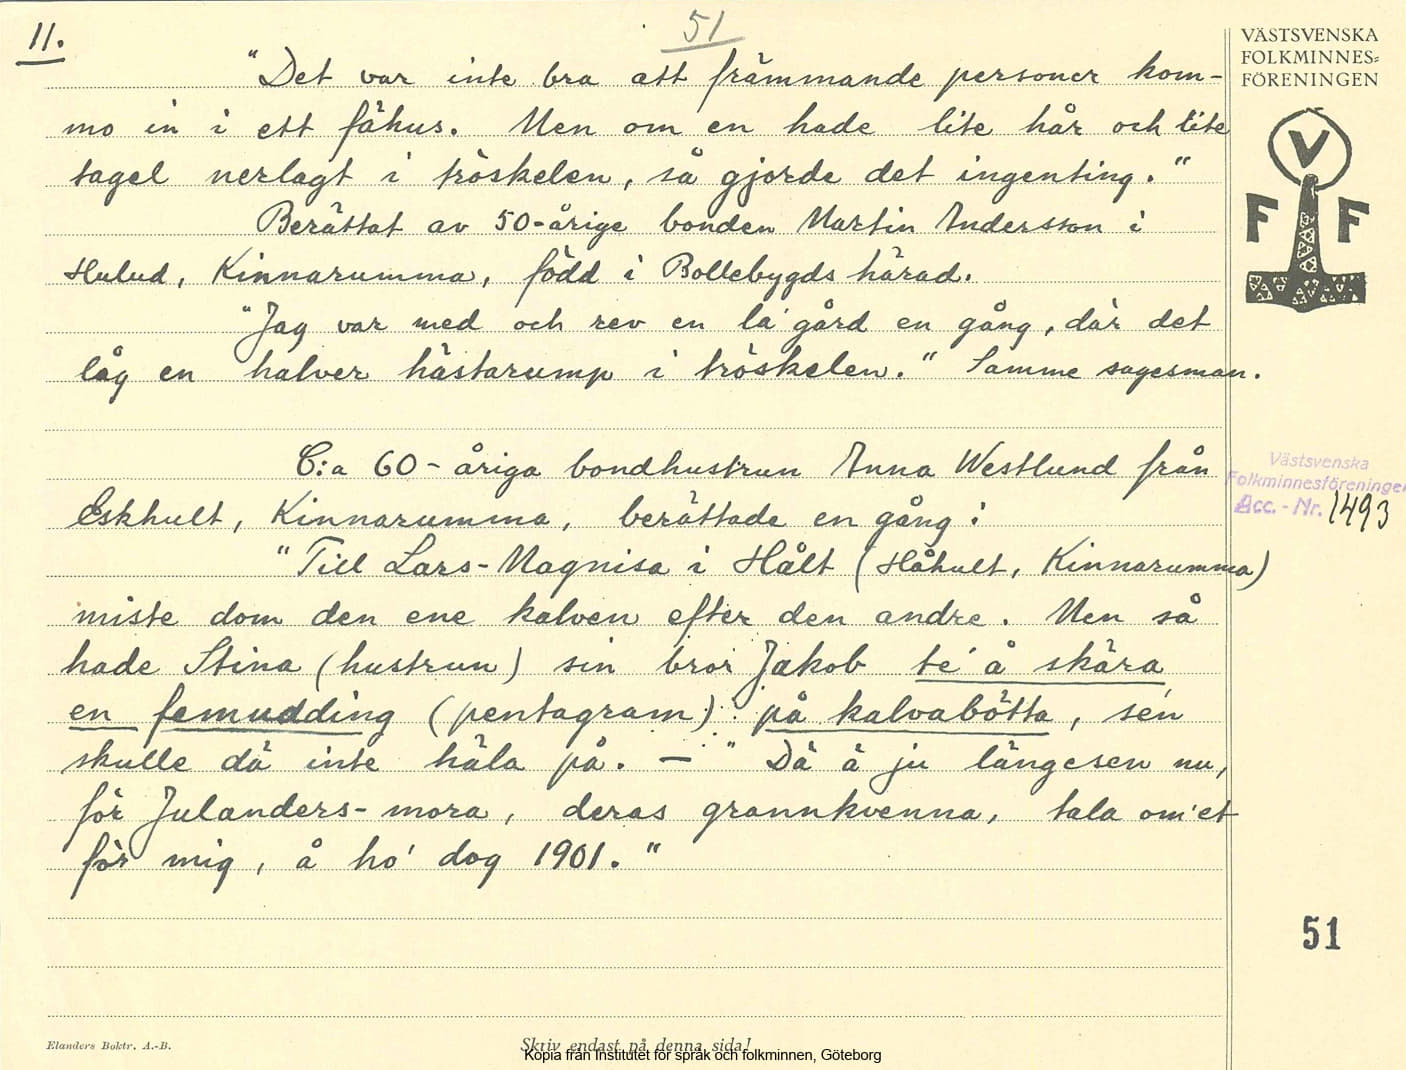 11.
51
VÄSTSVENSKA
FOLKMINNES-
FÖRENINGEN
V
F F
"Det var inte bra att främmande personer kom-
mo in i ett fähus. Men om en hade lite hår och lite
tagel nerlagt i tröskelen, så gjorde det ingenting."
Berättat av 50-årige bonden Martin Andersson i
Hulud, Kinnarumma, född i Bollebygds härad.
"Jag var med och rev en la'gård en gång, där det
låg en halver hästarump i tröskelen." Samme sagesman.
C:a 60-åriga bondhustrun Anna Westlund från
Eskhult, Kinnarumma, berättade en gång:
"Till Lars-Magnisa i Hålt (Håhult, Kinnarumma)
miste dom den ene kalven efter den andre. Men så
hade Stina (hustrun) sin bror Jakob te' å skära
en femudding (pentagram) på kalvabötta, sen
skulle dä inte häla på. — " Dä ä ju längesen nu,
för Julanders-mora, deras grannkvenna, tala om'et
för mig, å ho' dog 1901."
Västsvenska
Folkminnesföreningen
Acc. - Nr. 1493
51
Elanders Boktr. A.-B.
Skriv endast på denna sida!
Kopia från Institutet för språk och folkminnen, Göteborg